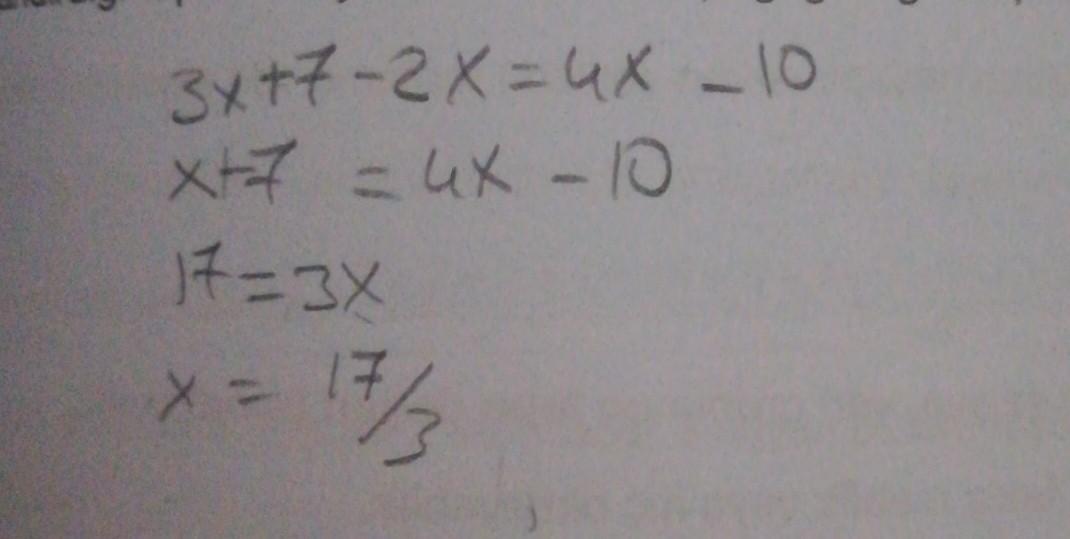 3x+7-2x=4x-10
x+7=4x-10
17=3x
x=17/3